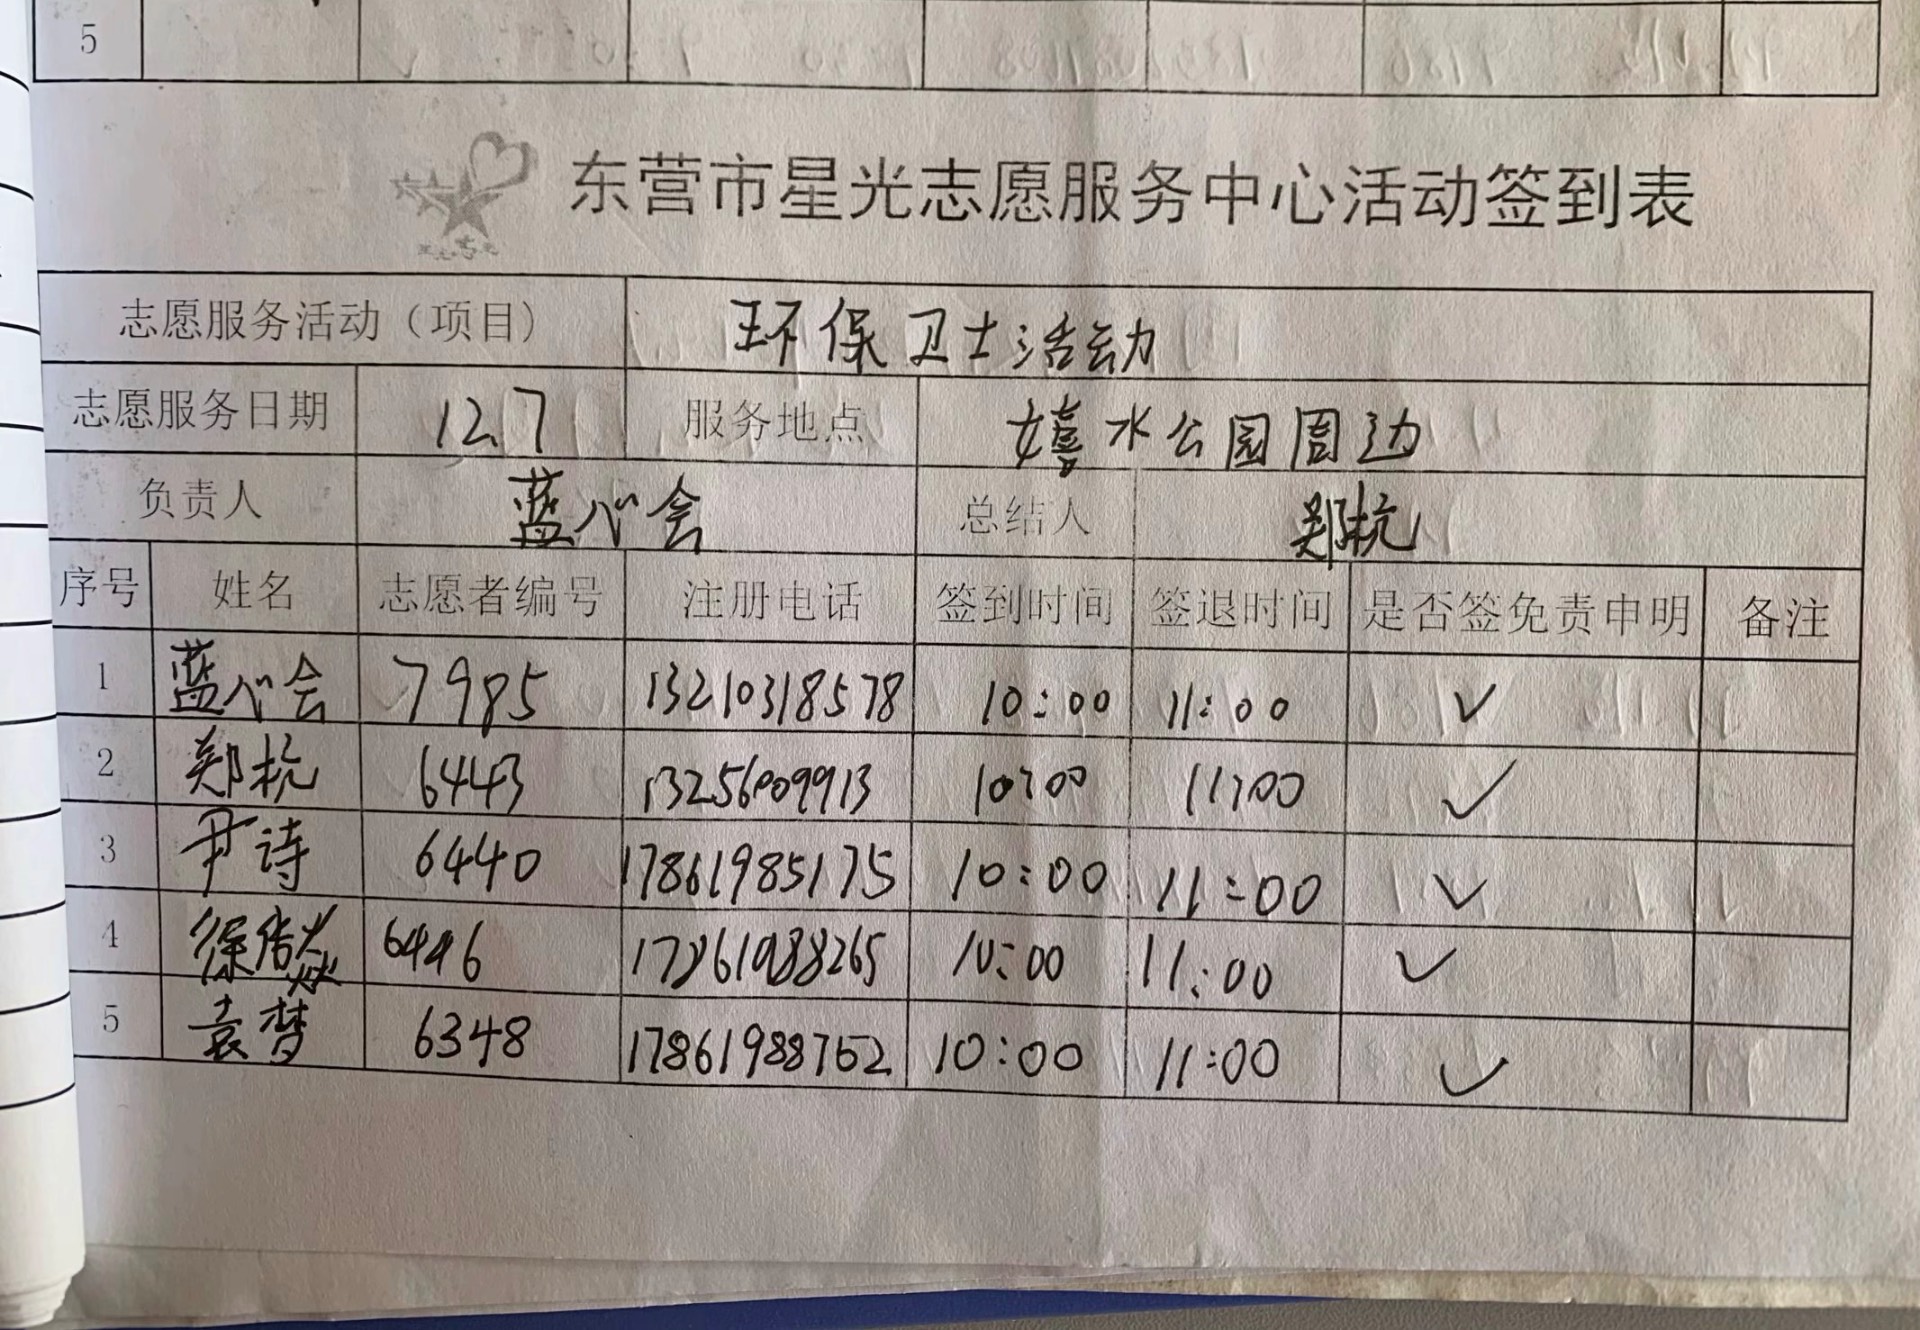 5
东营市星光志愿服务中心活动签到表
志愿服务活动（项目） 环保卫士活动
志愿服务日期 12.7 服务地点 嬉水公园周边
负责人 蓝心会 总结人 郑杭
序号 姓名 志愿者编号 注册电话 签到时间 签退时间 是否签免责申明 备注
1 蓝心会 7985 13210318578 10:00 11:00 ✓
2 郑杭 6443 13256009913 10:00 11:00 ✓
3 尹诗 6440 17861985175 10:00 11:00 ✓
4 6446 17861988265 10:00 11:00 ✓
5 袁梦 6348 17861988762 10:00 11:00 ✓